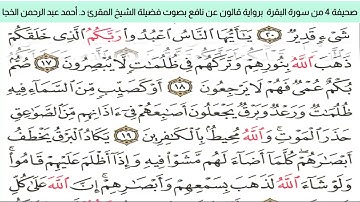 صحيفة 4 من سورة البقرة برواية قالون عن نافع بصوت فضيلة الشيخ المقرئ د. أحمد عبد الرحمن الخجا
شَيْءٍ قَدِيرٌ ٢٠ يَٰٓأَيُّهَا ٱلنَّاسُ ٱعْبُدُوا۟ رَبَّكُمُ ٱلَّذِى خَلَقَكُمْ
ذَهَبَ ٱللَّهُ بِنُورِهِمْ وَتَرَكَهُمْ فِى ظُلُمَٰتٍ لَّا يُبْصِرُونَ ١٧ صُمٌّۢ
بُكْمٌ عُمْىٌ فَهُمْ لَا يَرْجِعُونَ ١٨ أَوْ كَصَيِّبٍ مِّنَ ٱلسَّمَآءِ فِيهِ
ظُلُمَٰتٌ وَرَعْدٌ وَبَرْقٌ يَجْعَلُونَ أَصَٰبِعَهُمْ فِىٓ ءَاذَانِهِم مِّنَ ٱلصَّوَٰعِقِ
حَذَرَ ٱلْمَوْتِ وَٱللَّهُ مُحِيطٌۢ بِٱلْكَٰفِرِينَ ١٩ يَكَادُ ٱلْبَرْقُ يَخْطَفُ
أَبْصَٰرَهُمْ كُلَّمَآ أَضَآءَ لَهُم مَّشَوْا۟ فِيهِ وَإِذَآ أَظْلَمَ عَلَيْهِمْ قَامُوا۟
وَلَوْ شَآءَ ٱللَّهُ لَذَهَبَ بِسَمْعِهِمْ وَأَبْصَٰرِهِمْ إِنَّ ٱللَّهَ عَلَىٰ كُلِّ